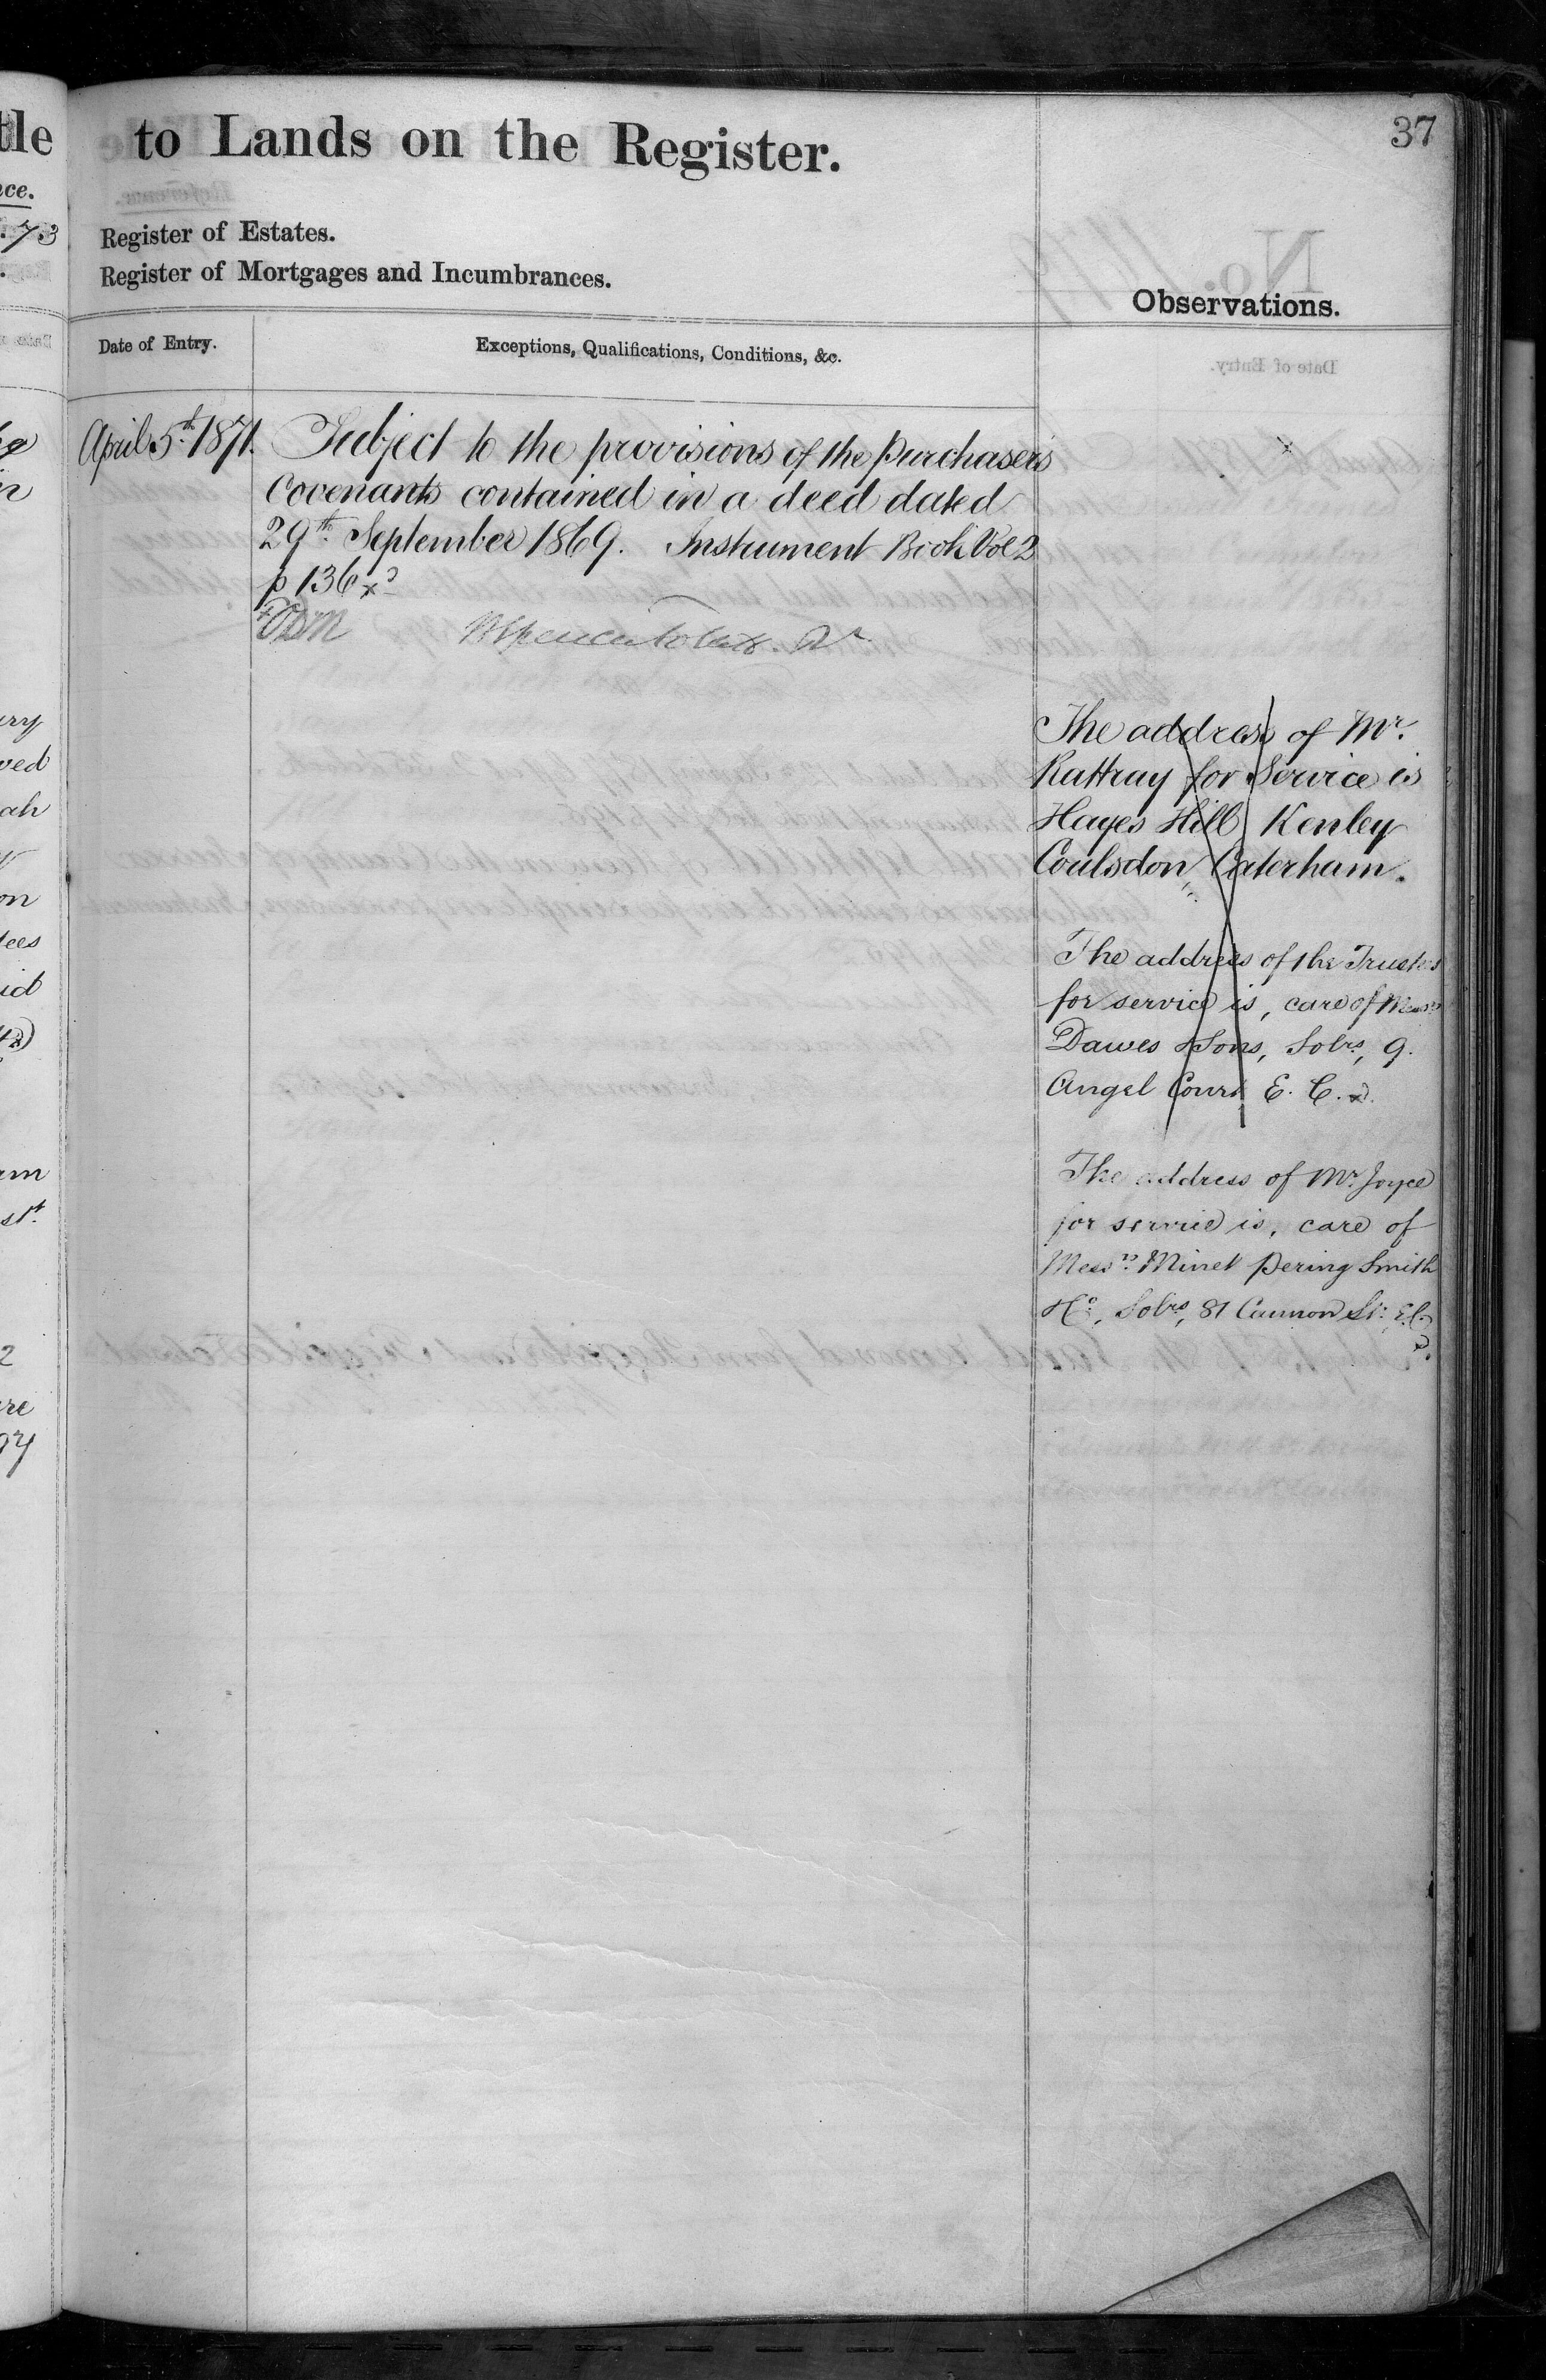 tle
to Lands on the Register.
37
ce.
. 73
Register of Estates.
Register of Mortgages and Incumbrances.
Observations.
Date of Entry.
Exceptions, Qualifications, Conditions, &c.
April 5th 1871.
Subject to the provisions of the Purchaser's
Covenants contained in a deed dated
29th September 1869. Instrument Book Vol 2
p 136
The address of Mr.
Rattray for Service is
Hayes Hill Kenley
Coulsdon, Caterham.
The address of the Trustees
for service is, care of Messrs
Dawes & Sons, Solrs, 9.
Angel Court E. C.
The address of Mr Joyce
for service is, care of
Messrs. Minet Pering Smith
& Co, Solrs, 81 Cannon St. E.C.
ery
ved
ah
on
tees
id
am
st.
2
re